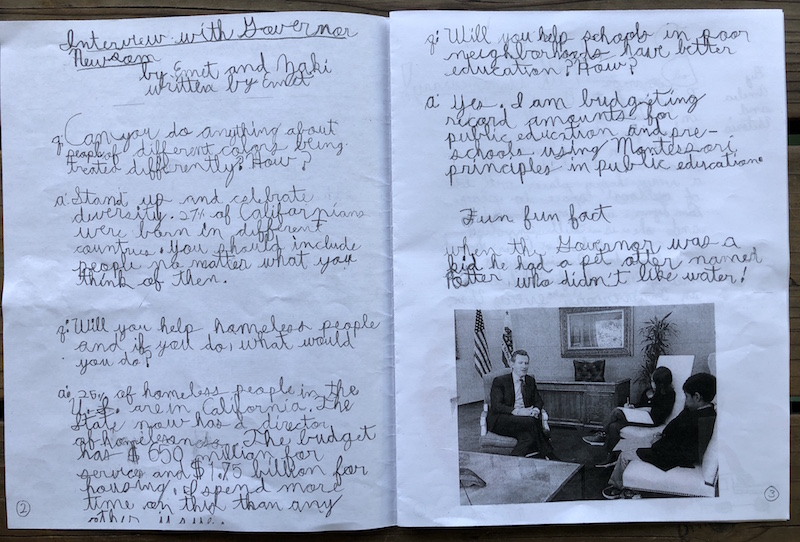 Interview with Governor
Newsom
by Emet and Naki
written by Emet
q: Can you do anything about
people of different colors being
treated differently? How?
a: Stand up and celebrate
diversity. 27% of Californians
were born in different
countries. You should include
people no matter what you
think of them.
q: Will you help homeless people
and if you do, what would
you do?
a: 25% of homeless people in the
U.S. are in California. The
State now has a director
of homelessness. The budget
has $650 million for
service and $1.75 billion for
housing. I spend more
time on this than any
other issue.
2
q: Will you help schools in poor
neighborhoods have better
education? How?
a: Yes. I am budgeting
record amounts for
public education and pre-
schools using Montessori
principles in public education.
Fun fun fact
when the Governor was a
kid he had a pet otter named
Potter who didn't like water!
3